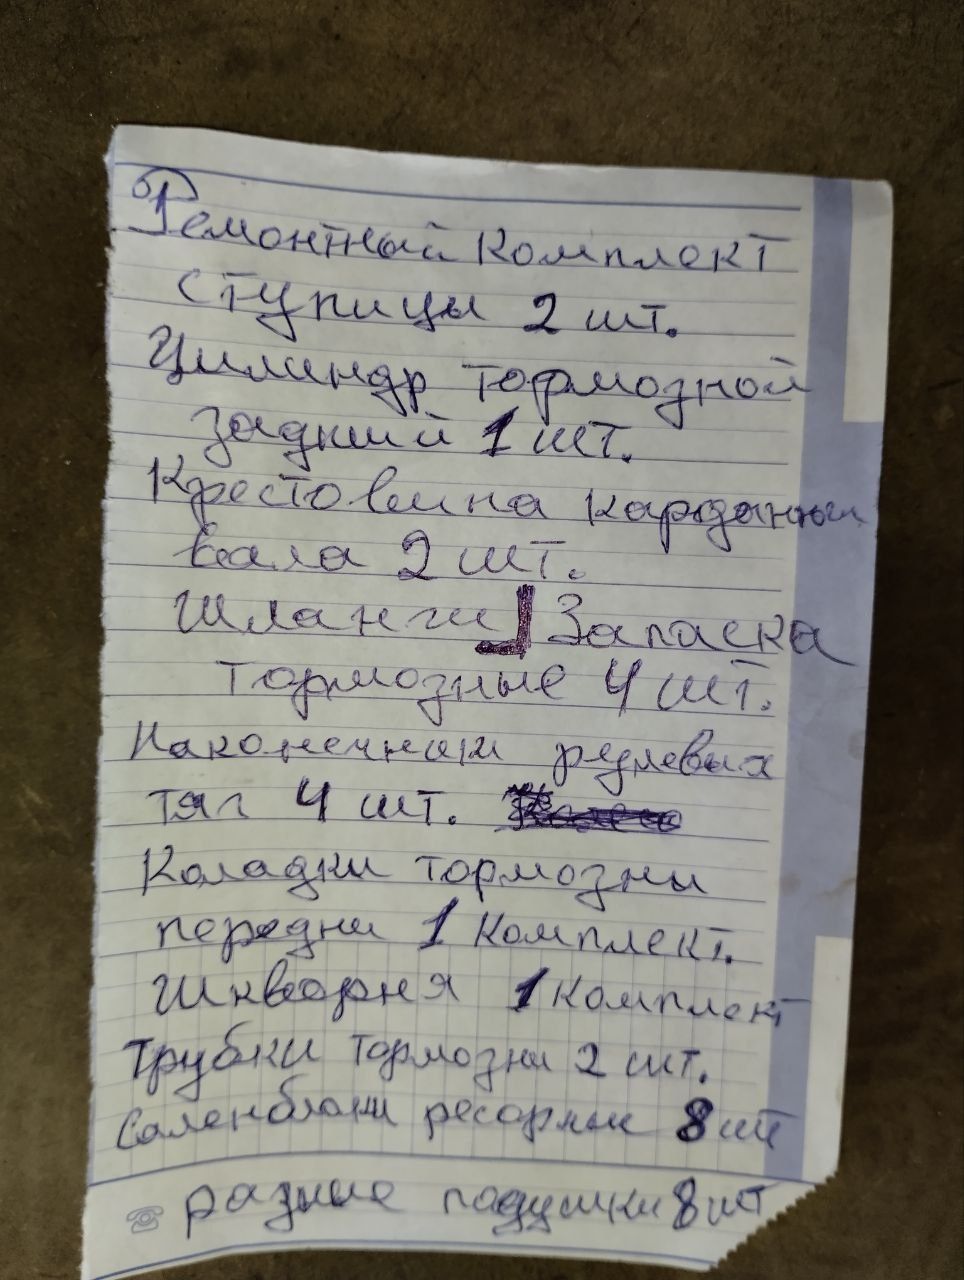 Ремонтный комплект
ступицы 2 шт.
Цилиндр тормозной
задний 1 шт.
Крестовина кардонный
вала 2 шт.
Шланги Запаска
тормозные 4 шт.
Наконечники рулевых
тяг 4 шт.
Коладки тормозни
передни 1 комплект.
Шкворня 1 комплект
Трубки тормозни 2 шт.
Саленблоки ресорные 8 шт
разные подушки 8 шт